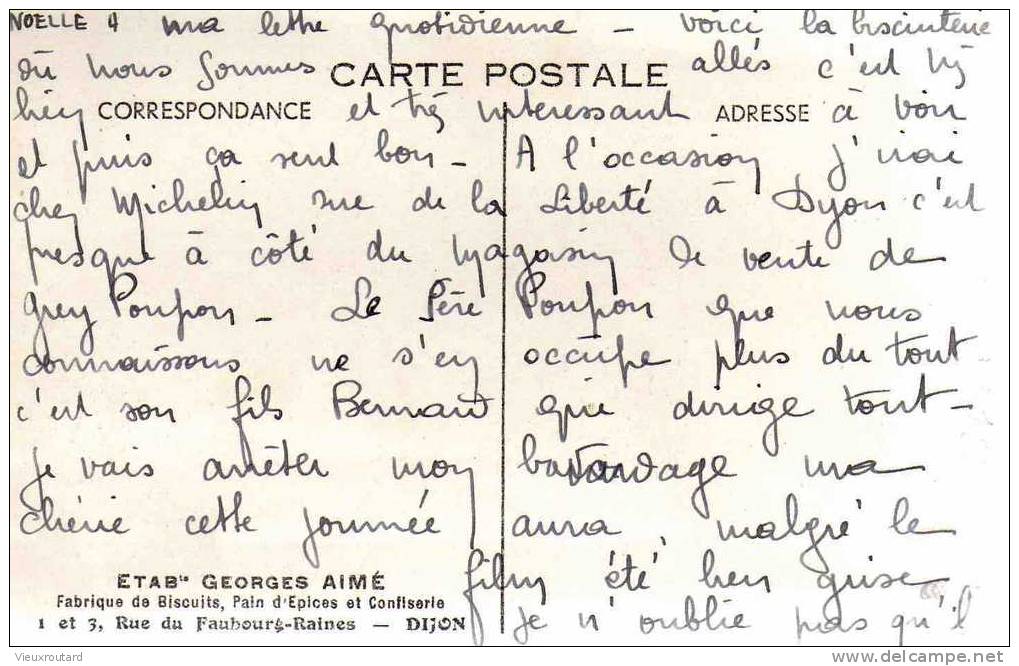 NOELLE 4 ma lettre quotidienne - voici la biscuiterie
où nous sommes allés c'est très
CARTE POSTALE
bien et très interessant à voir
CORRESPONDANCE ADRESSE
et puis ça sent bon - A l'occasion j'irai
chez Michelin rue de la Liberté à Dijon c'est
presque à côté du magasin de vente de
Grey Poupon - Le Père Poupon que nous
connaissons ne s'en occupe plus du tout
c'est son fils Bernard qui dirige tout -
Je vais arrêter mon bavardage ma
chérie cette journée aura, malgré le
film été bien grise
je n'oublie pas qu'il
ETABts GEORGES AIMÉ
Fabrique de Biscuits, Pain d'Epices et Confiserie
1 et 3, Rue du Faubourg-Raines — DIJON
Vieuxroutard
www.delcampe.net